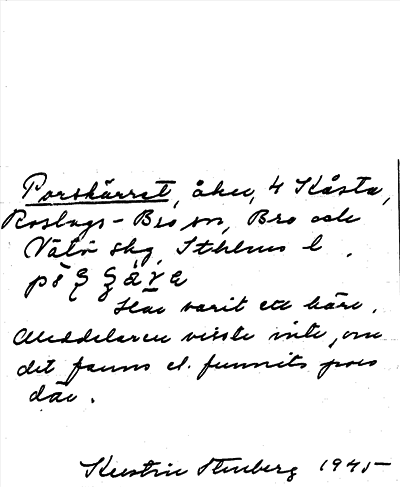 Porskärret, åker, 4 Kåsta,
Roslags-Bro sn, Bro och
Vätö skg, Sthlms l.
Har varit ett kärr.
Meddelaren visste inte, om
det fanns el. funnits pors
där.
Kerstin Stenberg 1945